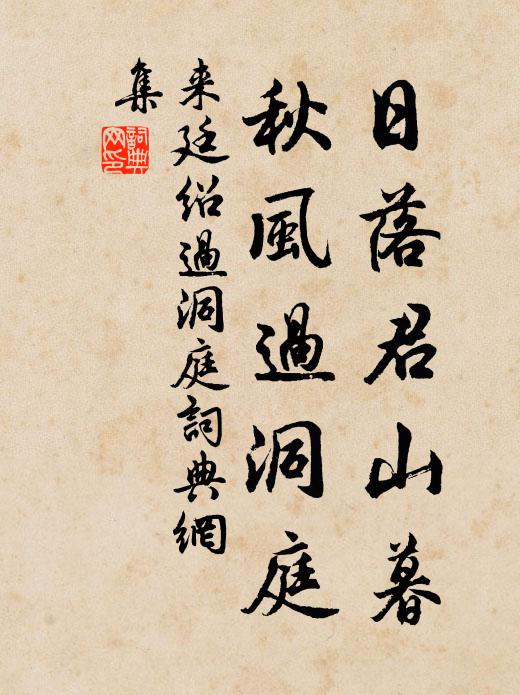 日落君山暮
秋風過洞庭
来廷绍過洞庭詞典網
集
詞典网印